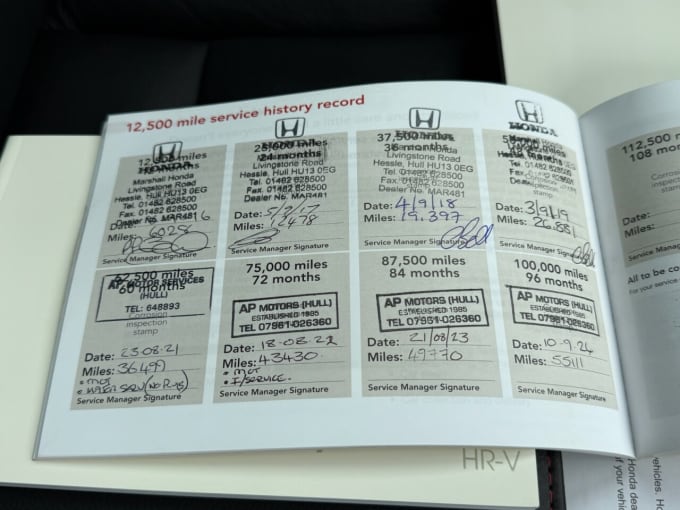 12,500 mile service history record
12,500 miles
HONDA
Marshall Honda
Livingstone Road
Hessle, Hull HU13 0EG
Tel. 01482 628500
Fax. 01482 628500
Dealer No. MAR481
Date:
Miles: 6028
Service Manager Signature
24 months
Livingstone Road
Hessle, Hull HU13 0EG
Tel. 01482 628500
Fax. 01482 628500
Dealer No. MAR481
Date: 5/9/17
Miles: 12478
Service Manager Signature
37,500 miles
HONDA
36 months
Livingstone Road
Hessle, Hull HU13 0EG
Tel. 01482 628500
Fax. 01482 628500
Dealer No. MAR481
Date: 4/9/18
Miles: 19.397
Service Manager Signature
HONDA
Date: 3/9/19
Miles: 26.881
Service Manager Signature
62,500 miles
60 months
AP MOTOR SERVICES
(HULL)
TEL: 648893
Corrosion
inspection
stamp
Date: 23.08.21
Miles: 36499
• MOT
Service Manager Signature
75,000 miles
72 months
AP MOTORS (HULL)
ESTABLISHED 1985
TEL 07951-026360
Date: 18.08.22
Miles: 43430
• MOT
• I/SERVICE.
Service Manager Signature
87,500 miles
84 months
AP MOTORS (HULL)
ESTABLISHED 1985
TEL 07951-026360
Date: 21/08/23
Miles: 49770
Service Manager Signature
100,000 miles
96 months
AP MOTORS (HULL)
ESTABLISHED 1985
TEL 07951-026360
Date: 10.9.24
Miles: 55111
Service Manager Signature
112,500
108
Corros
inspect
stamp
Date:
Miles:
Service Manag
All to be co
For your service
HR-V
vehicles. H
Honda dea
of your vehic